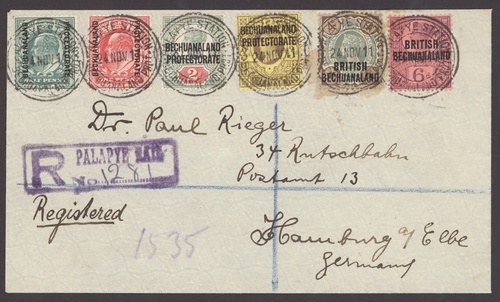 BECHUANALAND PROTECTORATE
BECHUANALAND PROTECTORATE
BECHUANALAND PROTECTORATE
2
BECHUANALAND PROTECTORATE
BRITISH BECHUANALAND
BRITISH BECHUANALAND
6
PALAPYE STATION
24 NOV 11
Dr. Paul Rieger
34 Rutschbahn
Postamt 13
Hamburg a/Elbe
Germany
R PALAPYE
No. 1281
Registered
1535